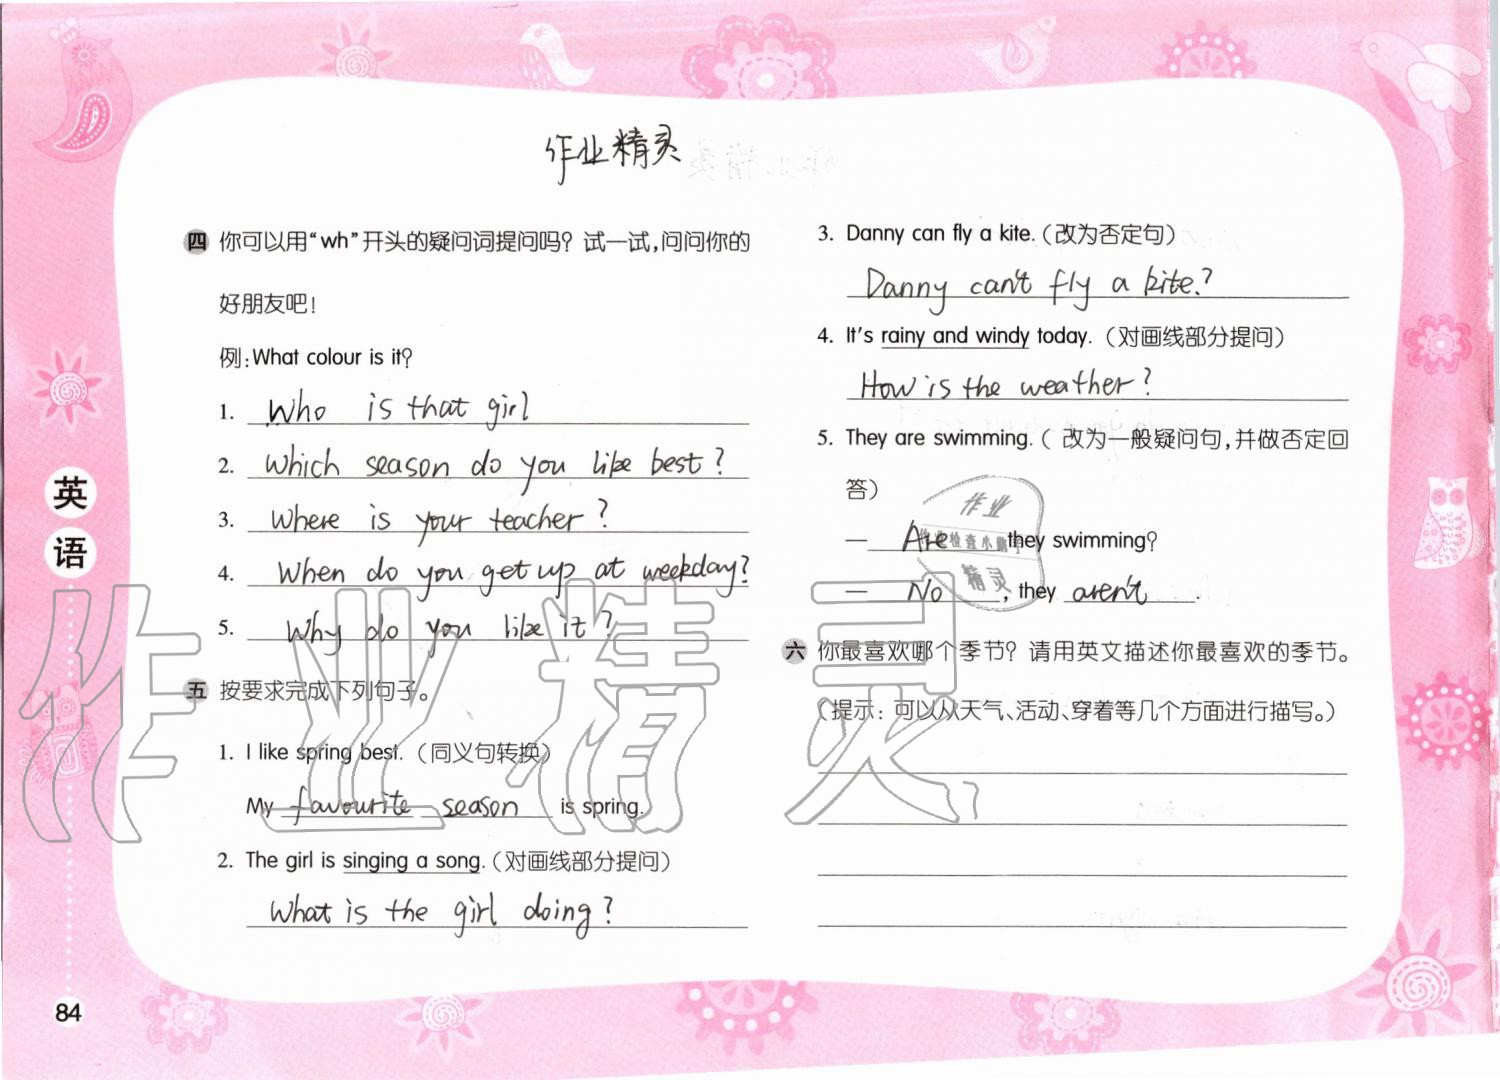 作业精灵
四 你可以用“wh”开头的疑问词提问吗？试一试,问问你的
好朋友吧！
例:What colour is it?
1. Who is that girl
2. Which season do you like best?
3. Where is your teacher?
4. When do you get up at weekday?
5. Why do you like it?
五 按要求完成下列句子。
1. I like spring best.（同义句转换）
My favourite season is spring.
2. The girl is singing a song.（对画线部分提问）
What is the girl doing?
3. Danny can fly a kite.（改为否定句）
Danny can't fly a kite.?
4. It's rainy and windy today.（对画线部分提问）
How is the weather?
5. They are swimming.（ 改为一般疑问句,并做否定回
答）
— Are they swimming?
— No , they aren't .
六 你最喜欢哪个季节？请用英文描述你最喜欢的季节。
（提示：可以从天气、活动、穿着等几个方面进行描写。）
作业
检查小助手
精灵
作业精灵
英
语
84